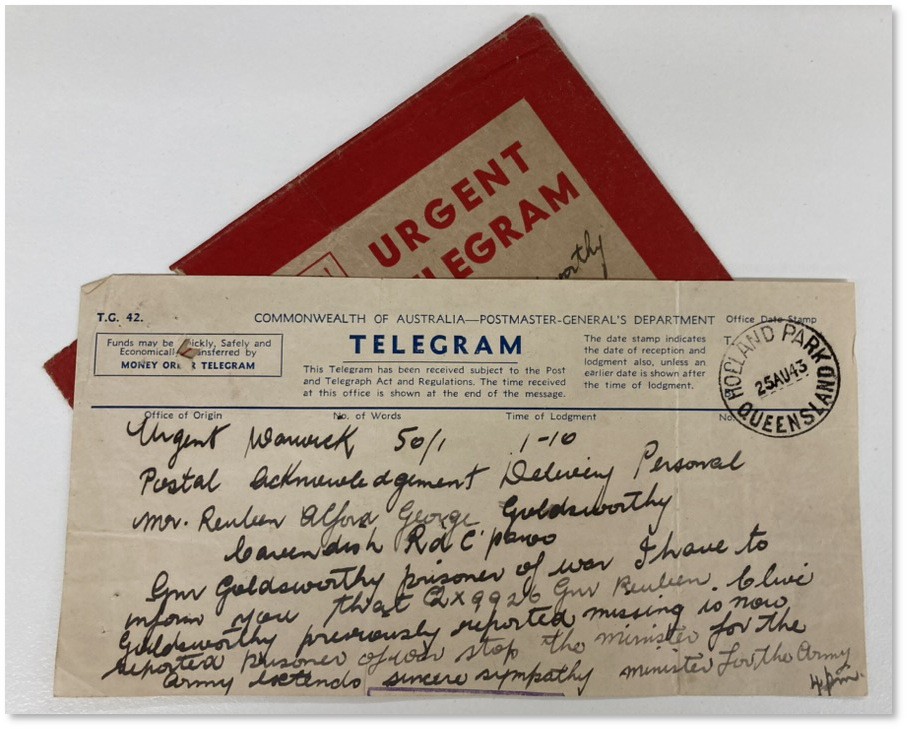 URGENT
TELEGRAM
T.G. 42.
COMMONWEALTH OF AUSTRALIA—POSTMASTER-GENERAL'S DEPARTMENT
Office Date Stamp
Funds may be
Economically
MONEY ORDER TELEGRAM
TELEGRAM
This Telegram has been received subject to the Post
and Telegraph Act and Regulations. The time received
at this office is shown at the end of the message.
The date stamp indicates
the date of reception and
lodgment also, unless an
earlier date is shown after
the time of lodgment.
HOLLAND PARK
25AU43
QUEENSLAND
Office of Origin No. of Words Time of Lodgment No.
Urgent Warwick 50/1 1-10
Postal acknowledgement Delivery Personal
Mr. Reuben Alford George Goldsworthy
Cavendish Rd
Gnr Goldsworthy prisoner of war I have to
inform you that QX9926 Gnr Reuben Clive
Goldsworthy previously reported missing is now
reported prisoner of war stop the minister for the
Army extends sincere sympathy minister for the Army
4pm.